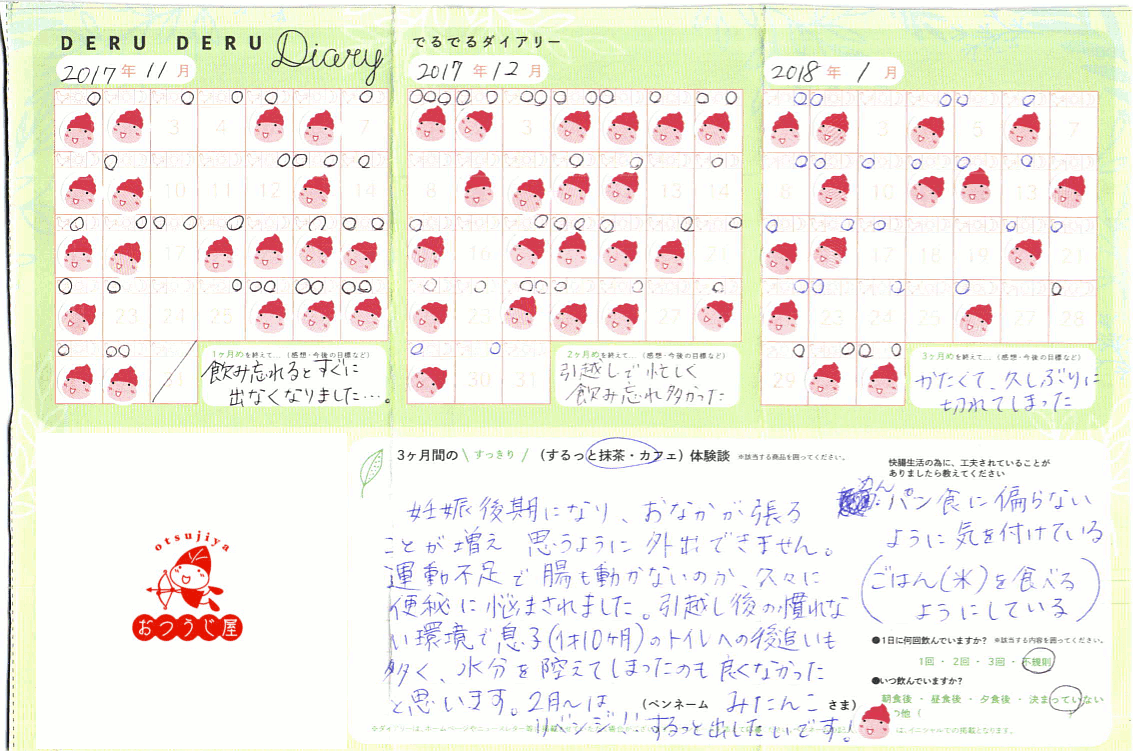 DERU DERU Diary
でるでるダイアリー
2017年11月
2017年12月
2018年1月
3 4 7
10 11 12 14
17
23 24 25
31
1ヶ月めを終えて…（感想・今後の目標など）
飲み忘れるとすぐに
出なくなりました…。
3
8 13 14
16 21
22 23 28
30 31
2ヶ月めを終えて…（感想・今後の目標など）
引越しで忙しく
飲み忘れ多かった
3 5 7
8 10 13
17 18 19 21
23 24 25 27 28
29
3ヶ月めを終えて…（感想・今後の目標など）
かたくて、久しぶりに
切れてしまった
otsujiya
おつうじ屋
3ヶ月間の\すっきり/（するっと抹茶・カフェ）体験談 ※該当する商品を囲ってください。
妊娠後期になり、おなかが張る
ことが増え 思うように外出できません。
運動不足で腸も動かないのか、久々に
便秘に悩まされました。引越し後の慣れな
い環境で息子(1才10ヶ月)のトイレへの後追いも
多く、水分を控えてしまったのも良くなかった
と思います。2月〜は
リベンジ!!するっと出したいです!
（ペンネーム みたんこ さま）
快腸生活の為に、工夫されていることが
ありましたら教えてください
パン食に偏らない
ように気を付けている
(ごはん(米)を食べる
ようにしている)
●1日に何回飲んでいますか? ※該当する内容を囲ってください。
1回・2回・3回・不規則
●いつ飲んでいますか?
朝食後・昼食後・夕食後・決まっていない
の他（
は、イニシャルでの掲載となります。